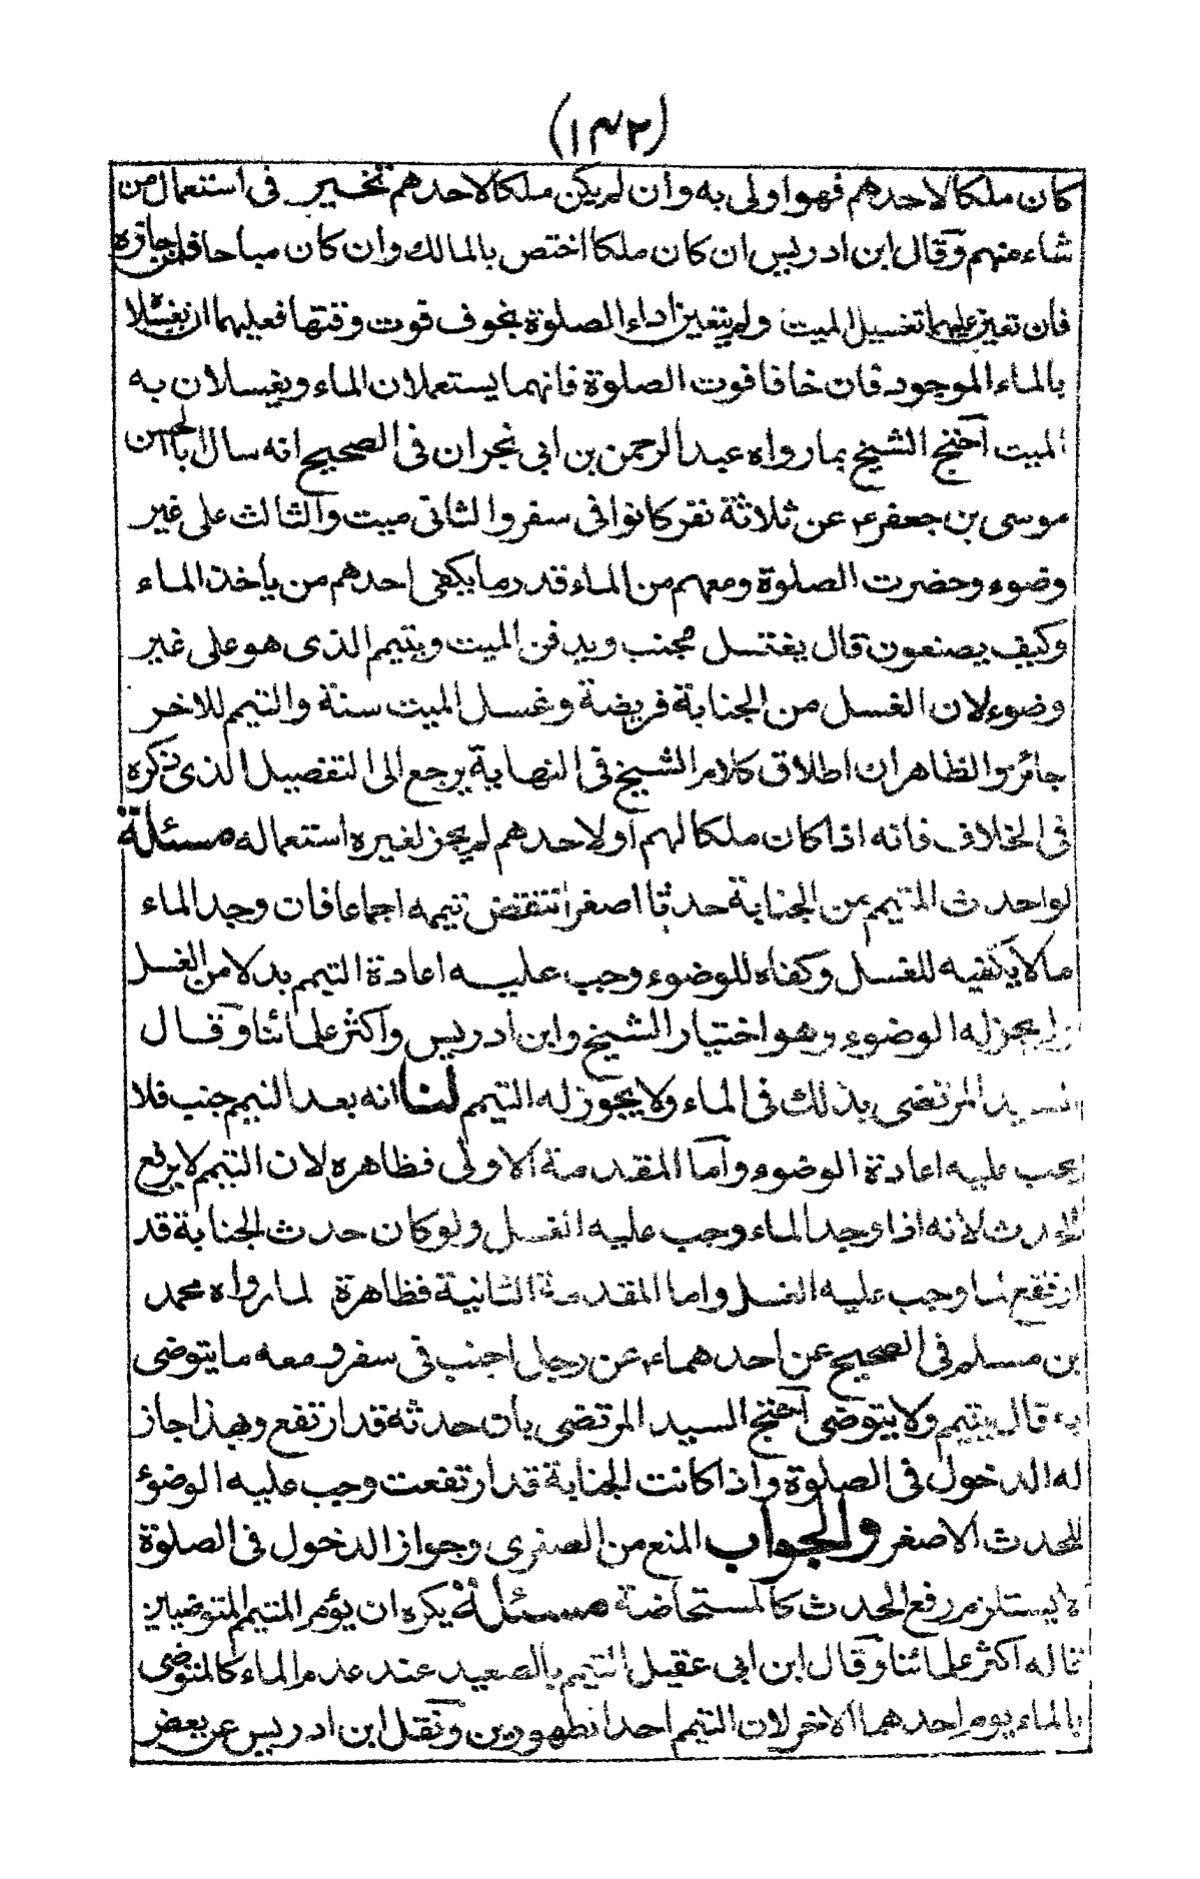 (١٤٢)
كان ملكا لاحدهم فهو اولى به وان لم يكن ملكا لاحدهم تخير فى استعمال من
شاء منهم وقال ابن ادريس ان كان ملكا اختص بالمالك وان كان مباحا فلمن حازه
فان تعين عليهما تغسيل الميت ولم يتعين اداء الصلوة بخوف فوت وقتها فعليهما ان يغسلا
بالماء الموجود فان خافا فوت الصلوة فانهما يستعملان الماء ويغسلان به
الميت احتج الشيخ بما رواه عبد الرحمن بن ابى نجران فى الصحيح انه سال ابا الحسن
موسى بن جعفر ع عن ثلاثة نفر كانوا فى سفر والثانى ميت والثالث على غير
وضوء وحضرت الصلوة ومعهم من الماء قدر ما يكفى احدهم من ياخذ الماء
وكيف يصنعون قال يغتسل مجنب ويدفن الميت ويتيمم الذى هو على غير
وضوء لان الغسل من الجنابة فريضة وغسل الميت سنة والتيمم للاخر
جائز والظاهر ان اطلاق كلام الشيخ فى النهاية يرجع الى التفصيل الذى ذكره
فى الخلاف فانه اذا كان ملكا لهم او لاحدهم لم يجز لغيره استعماله مسئلة
لو احدث المتيمم من الجنابة حدثا اصغر انتقض تيممه اجماعا فان وجد الماء
ما لا يكفيه للغسل وكفاه للوضوء وجب عليه اعادة التيمم بدلا من الغسل
ولم يجز له الوضوء وهو اختيار الشيخ وابن ادريس واكثر علمائنا وقال
السيد المرتضى بذلك فى الماء ولا يجوز له التيمم لنا انه بعد التيمم جنب فلا
يجب عليه اعادة الوضوء واما المقدمة الاولى فظاهره لان التيمم لا يرفع
الحدث لانه اذا وجد الماء وجب عليه الغسل ولو كان حدث الجنابة قد
ارتفع لما وجب عليه الغسل واما المقدمة الثانية فظاهرة لما رواه محمد
بن مسلم فى الصحيح عن احدهماء عن رجل اجنب فى سفر ومعه ما يتوضى
به قال يتيمم ولا يتوضى احتج السيد المرتضى بان حدثه قد ارتفع وبهذا جاز
له الدخول فى الصلوة واذا كانت الجنابة قد ارتفعت وجب عليه الوضؤ
للحدث الاصغر والجواب المنع من الصغرى وجواز الدخول فى الصلوة
لا يستلزم رفع الحدث كالمستحاضة مسئلة يكره ان يؤم المتيمم المتوضيين
قاله اكثر علمائنا وقال ابن ابى عقيل المتيمم بالصعيد عند عدم الماء كالمتوضى
بالماء يوم احدهما الاخر لان التيمم احد الطهورين ونقل ابن ادريس عن بعض